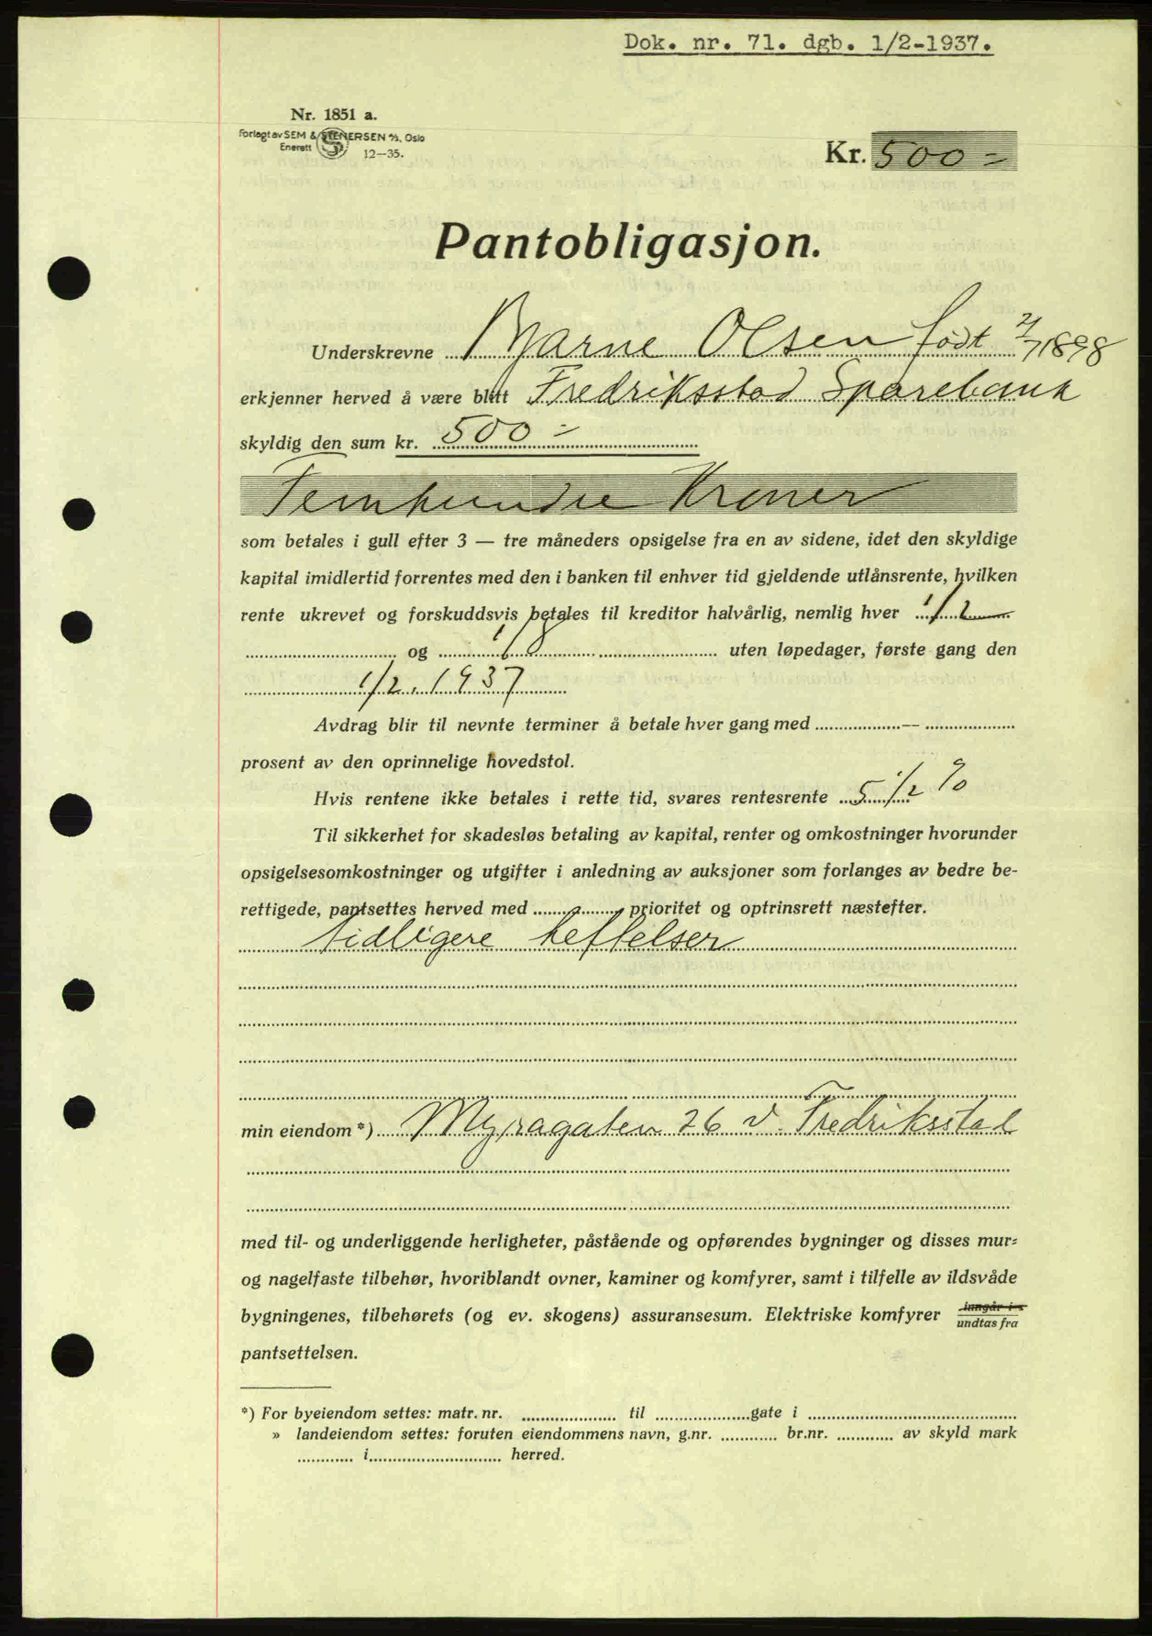 Dok. nr. 71. dgb. 1/2-1937.
Nr. 1851 a.
Forlagt av SEM & STENERSEN A/S, Oslo
Enerett 12—35.
Kr. 500 =
Pantobligasjon.
Underskrevne Bjarne Olsen født 1898
erkjenner herved å være blitt Fredriksstad Sparebank
skyldig den sum kr. 500 =
Femhundre Kroner
som betales i gull efter 3 — tre måneders opsigelse fra en av sidene, idet den skyldige
kapital imidlertid forrentes med den i banken til enhver tid gjeldende utlånsrente, hvilken
rente ukrevet og forskuddsvis betales til kreditor halvårlig, nemlig hver 1/2
og 1/8 uten løpedager, første gang den
1/2. 1937
Avdrag blir til nevnte terminer å betale hver gang med —
prosent av den oprinnelige hovedstol.
Hvis rentene ikke betales i rette tid, svares rentesrente 5 1/2 %
Til sikkerhet for skadesløs betaling av kapital, renter og omkostninger hvorunder
opsigelsesomkostninger og utgifter i anledning av auksjoner som forlanges av bedre be-
rettigede, pantsettes herved med prioritet og optrinsrett næstefter.
tidligere heftelser
min eiendom *) Myragaten 26 v. Fredriksstad
med til- og underliggende herligheter, påstående og opførendes bygninger og disses mur-
og nagelfaste tilbehør, hvoriblandt ovner, kaminer og komfyrer, samt i tilfelle av ildsvåde
bygningenes, tilbehørets (og ev. skogens) assuransesum. Elektriske komfyrer inngår i
undtas fra
pantsettelsen.
*) For byeiendom settes: matr. nr. til gate i
» landeiendom settes: foruten eiendommens navn, g.nr. br.nr. av skyld mark
i herred.